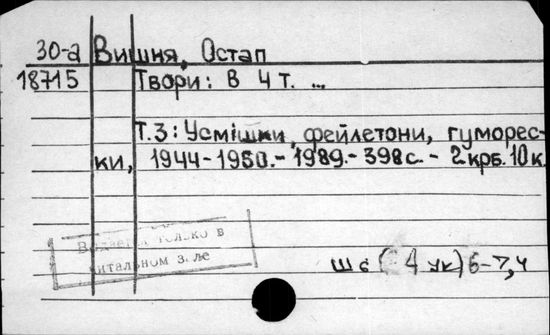 30-а Вишня, Остап
18715 Твори: В 4 т. ...
Т.3: Усмішки, фейлетони, гуморес-
ки, 1944-1950.- 1989.- 398 с. - 2 крб. 10 к.
Выдается только в
читальном зале
Ш6(4Ук)6-7,4